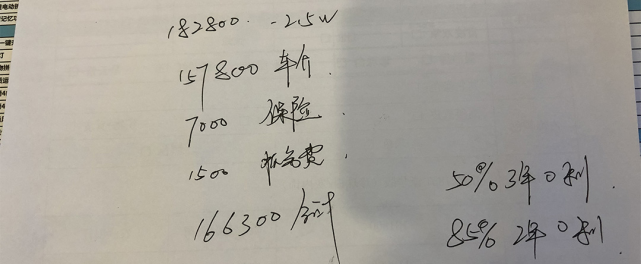 182800. -2.5W
157800 车价.
7000 保险.
1500 上牌费.
166300 合计
50% 3年0利.
85% 2年0利